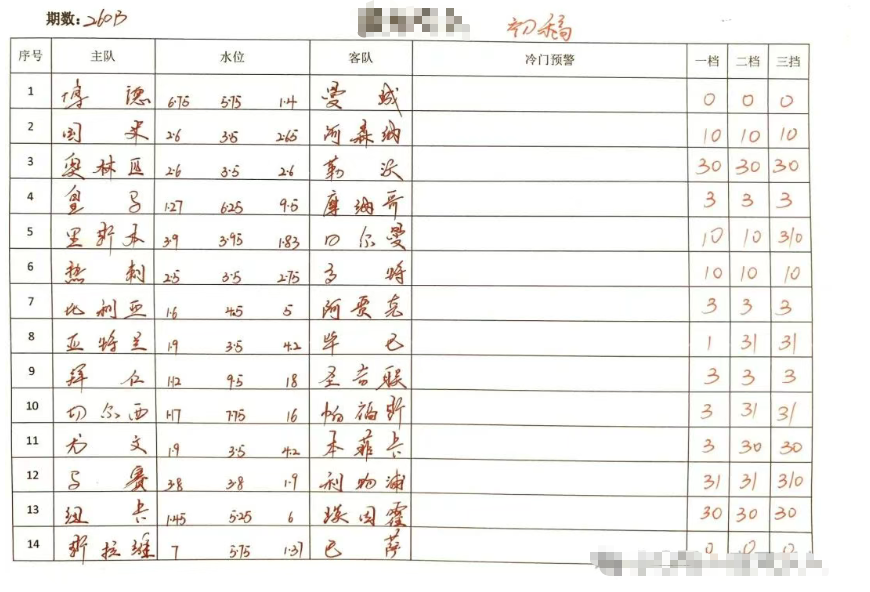 期数: 26013
初稿
序号 主队 水位 客队 冷门预警 一档 二档 三挡
1 博德 6.75 5.75 1.4 曼城 0 0 0
2 国米 2.6 3.5 2.65 阿森纳 10 10 10
3 奥林匹 2.6 3.5 2.6 勒沃 30 30 30
4 皇马 1.27 6.25 9.5 摩纳哥 3 3 3
5 里斯本 3.9 3.95 1.83 曼 10 10 310
6 热刺 2.5 3.5 2.75 多特 10 10 10
7 比利亚 1.6 4.5 5 阿贾克 3 3 3
8 亚特兰 1.9 3.5 4.2 毕巴 1 31 31
9 拜仁 1.12 9.5 18 圣吉联 3 3 3
10 切尔西 1.17 7.75 16 帕福斯 3 31 31
11 尤文 1.9 3.5 4.2 本菲卡 3 30 30
12 马赛 3.8 3.8 1.9 利物浦 31 31 310
13 纽卡 1.45 5.25 6 埃因霍 30 30 30
14 斯拉维 7 5.75 1.37 巴萨 0 0 0